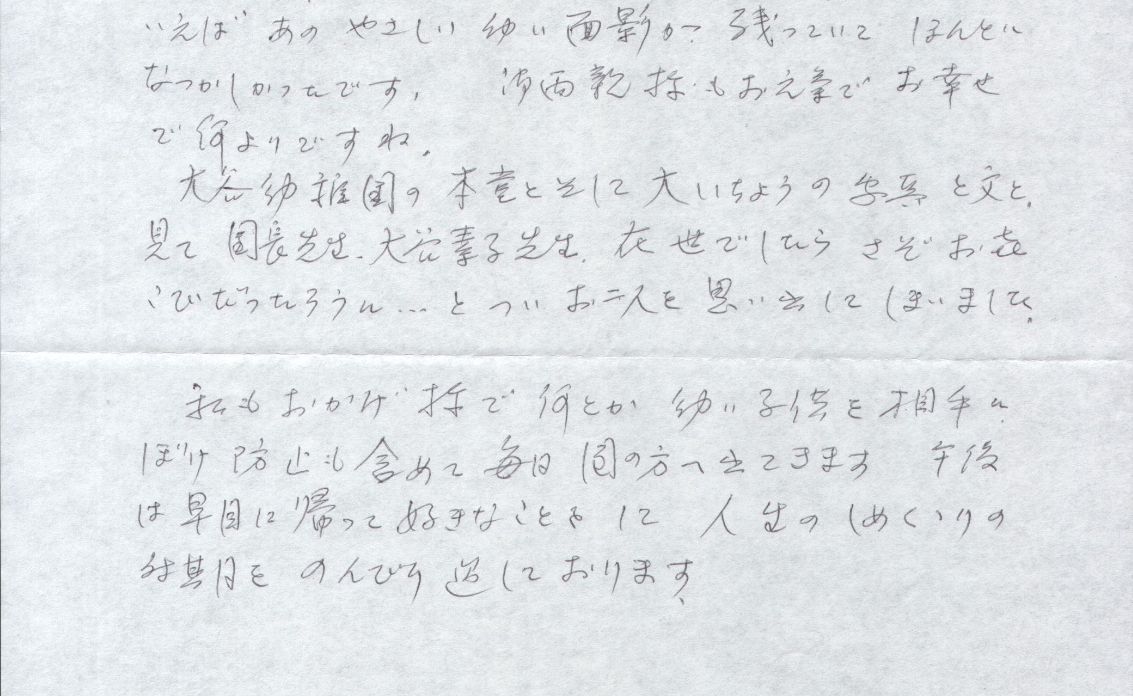 いえば あの やさしい 幼い 面影が 残っていて ほんとに
なつかしかったです。 御両親様もお元気で お幸せ
で何よりですね。
大谷幼稚園の本堂とそして大いちょうの写真と文と、
見て 園長先生、大谷素子先生、在世でしたら さぞお喜
こびだったろうに…と ついお二人を思い出してしまいました。
私もおかげ様で何とか 幼い子供を相手に
ぼけ防止も含めて毎日 園の方へ出てきます 午後
は早目に帰って好きなことをして 人生のしめくゝりの
時期を のんびり過しております。